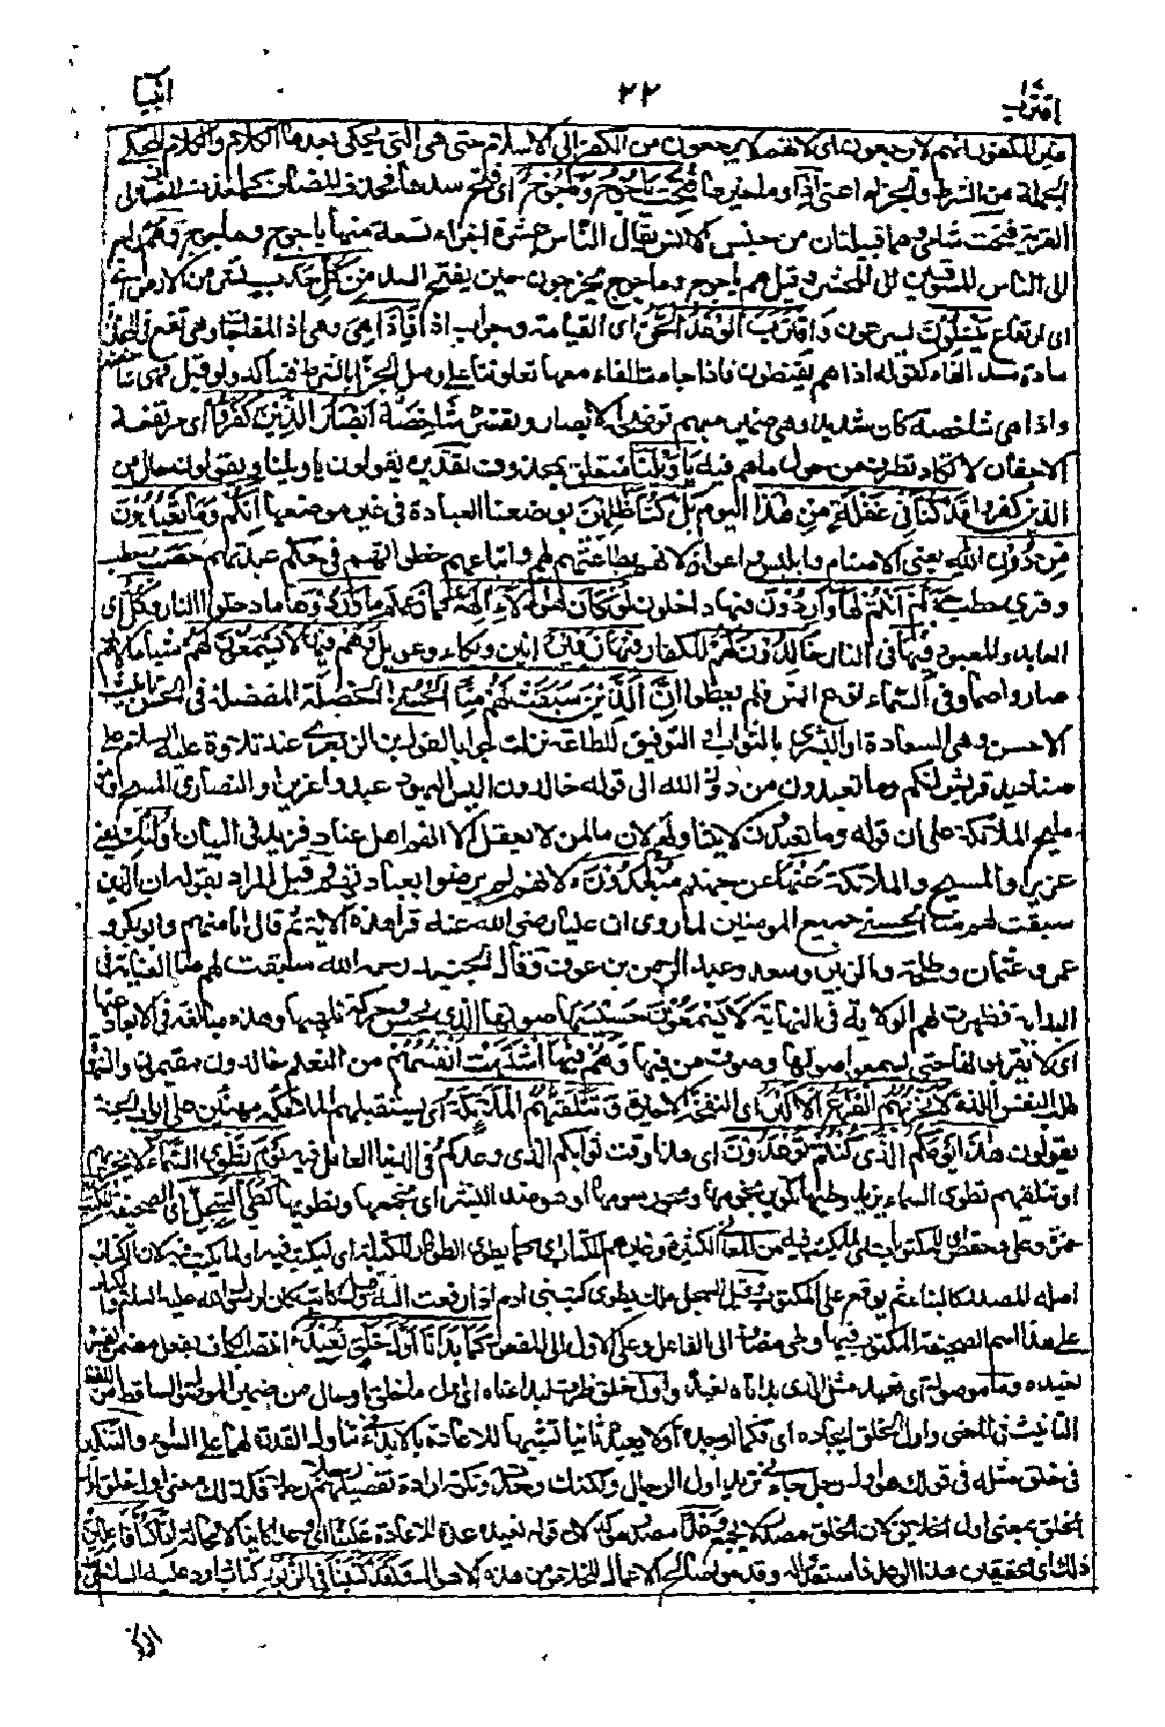 اقترب ٢٢ انبيا
من الكفر لانهم لا يرجعون اى لانهم لا يرجعون من الكفر الى الاسلام حتى هى التى يحكى بعدها الكلام والكلام المحكى
الجملة من الشرط والجزاء اعنى اذا وما فى حيزها فتحت ياجوج وماجوج اى فتح سدهما فحذف المضاف كما حذف المضاف الى
القرية فتحت شامى وهما قبيلتان من جنس الانس يقال الناس عشرة اجزاء تسعة منها ياجوج وماجوج وهم راجع
الى الناس المسوقين الى المحشر وقيل هم ياجوج وماجوج يخرجون حين يفتح السد من كل حدب نشز من الارض
اى ارتفاع ينسلون يسرعون واقترب الوعد الحق اى القيامة وجواب اذا فاذا هى وهى اذا المفاجاة وهى تقع فى المجازاة
سادة مسد الفاء كقوله اذا هم يقنطون فاذا جاءت الفاء معها تعاونتا على وصل الجزاء بالشرط فيتاكد ولو قيل فهى شاخصة
او اذا هى شاخصة كان سديدا وهى ضمير مبهم توضحه الابصار وتفسره شاخصة ابصار الذين كفروا اى مرتفعة
الاجفان لا تكاد تطرف من هول ما هم فيه يا ويلنا متعلق بمحذوف تقديره يقولون يا ويلنا ويقولون حال من
الذين كفروا قد كنا فى غفلة من هذا اليوم بل كنا ظالمين بوضعنا العبادة فى غير موضعها انكم وما تعبدون
من دون الله يعنى الاصنام وابليس واعوانه لانهم بطاعتهم لهم واتباعهم خطواتهم فى حكم عبدتهم حصب حطب
وقرئ حطب جهنم انتم لها واردون فيها داخلون لو كان هؤلاء الهة كما زعمتم ما وردوها ما دخلوا النار وكل اى
العابد والمعبود فيها فى النار خالدون لهم للكفار فيها زفير انين وبكاء وعويل وهم فيها لا يسمعون شيئا ما لانهم
صاروا صما وفى السماع نوع انس فلم يعطوا ان الذين سبقت لهم منا الحسنى الخصلة المفضلة فى الحسن تانيث
الاحسن وهى السعادة او البشرى بالثواب او التوفيق للطاعة نزلت جوابا لقول ابن الزبعرى عند تلاوته عليه السلام على
صناديد قريش انكم وما تعبدون من دون الله الى قوله خالدون اليس اليهود عبدوا عزيرا والنصارى المسيح وبنو
مليح الملائكة على ان قوله وما تعبدون لا يتناولهم لان ما لمن لا يعقل الا انهم اهل عناد فزيد فى البيان اولئك يعنى
عزيرا والمسيح والملائكة عنها عن جهنم مبعدون لانهم لم يرضوا بعبادتهم وقيل المراد بقوله ان الذين
سبقت لهم منا الحسنى جميع المومنين لما روى ان عليا رضى الله عنه قرا هذه الاية ثم قال انا منهم وابو بكر و
عمر وعثمان وطلحة والزبير وسعد وعبد الرحمن بن عوف وقال الجنيد رحمه الله سبقت لهم منا العناية فى
البداية فظهرت لهم الولاية فى النهاية لا يسمعون حسيسها صوتها الذى يحس وحركة تلهبها وهذه مبالغة فى الابعاد عنها
اى لا يقربونها حتى لا يسمعوا صوتها وصوت من فيها وهم فيما اشتهت انفسهم من النعيم خالدون مقيمون والشهوة
طلب النفس اللذة لا يحزنهم الفزع الاكبر اى النفخة الاخيرة وتتلقاهم الملائكة اى يستقبلهم الملائكة مهنئين على ابواب الجنة
يقولون هذا يومكم الذى كنتم توعدون اى هذا وقت ثوابكم الذى وعدكم فى الدنيا العامل فيه يوم نطوى السماء لا يحزنهم
او تتلقاهم تطوى السماء يزيد وطيها تكوير نجومها ومحو رسومها او هو ضد النشر اى نجمعها ونطويها كطى السجل اى الصحيفة للكتب
حمزة وعلى وحفص اى للمكتوبات اى لما يكتب فيه من المعانى الكثيرة وغيرهم للكتاب اى كما يطوى الطومار للكتابة اى ليكتب فيه او لما يكتب فيه لان الكتاب
اصله المصدر كالبناء ثم يوقع على المكتوب وقيل السجل ملك يطوى كتب بنى ادم اذا رفعت اليه وقيل كاتب كان لرسول الله عليه السلام والكتاب
على هذا اسم الصحيفة المكتوب فيها وطى مضاف الى الفاعل وعلى الاول الى المفعول كما بدانا اول خلق نعيده انتصب الكاف بفعل مضمر يفسره
نعيده وما موصولة اى نعيد مثل الذى بداناه نعيده واول خلق ظرف لبدانا اى اول ما خلق او حال من ضمير الموصول الساقط من اللفظ
الثابت فى المعنى واول الخلق ايجاده اى فكما اوجده اولا يعيده ثانيا تشبيها للاعادة بالابداء فى تناول القدرة لهما على السواء والتنكير
فى خلق مثله فى قولك هو اول رجل جاءنى تريد اول الرجال ولكنك وحدته ونكرته ارادة تفصيلهم رجلا رجلا فكذلك معنى اول خلق اول
الخلق بمعنى اول الخلائق لان الخلق مصدر لا يجمع وعدا مصدر مؤكد لان قوله نعيده عدة للاعادة علينا اى وعدا كائنا لا محالة انا كنا فاعلين
ذلك اى محققين هذا الوعد فاستعدوا له وقدموا صالح الاعمال للخلاص من هذه الاهوال ولقد كتبنا فى الزبور كتاب داود عليه السلام